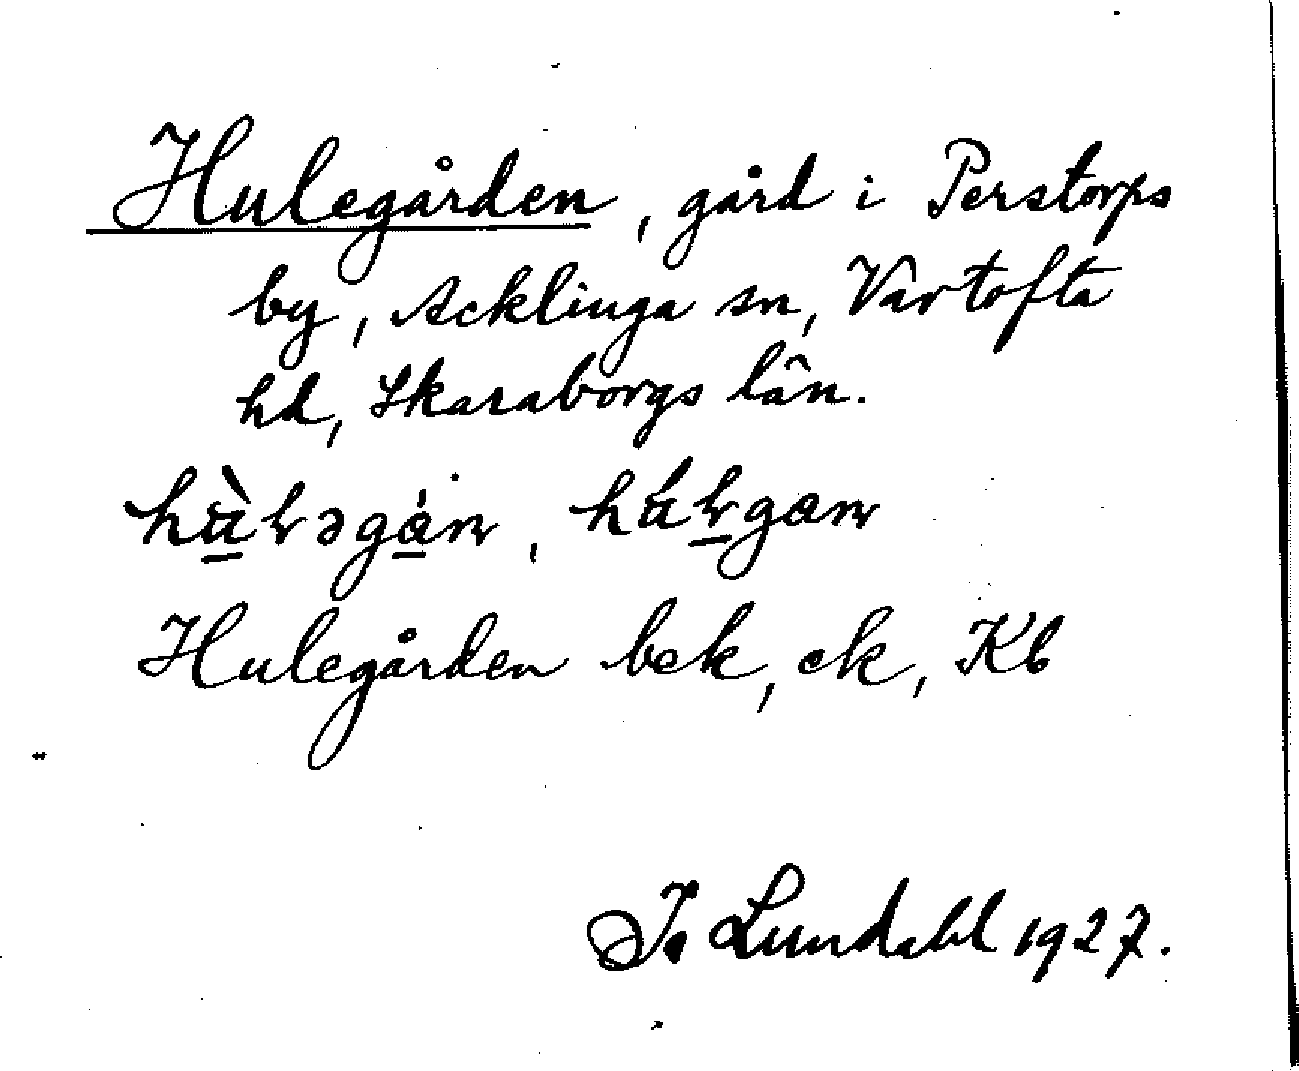 Hulegården, gård i Perstorps
by, Acklinga sn, Vartofta
hd, Skaraborgs län.
Hulegården bek, ek, Kb
Lundahl 1927.